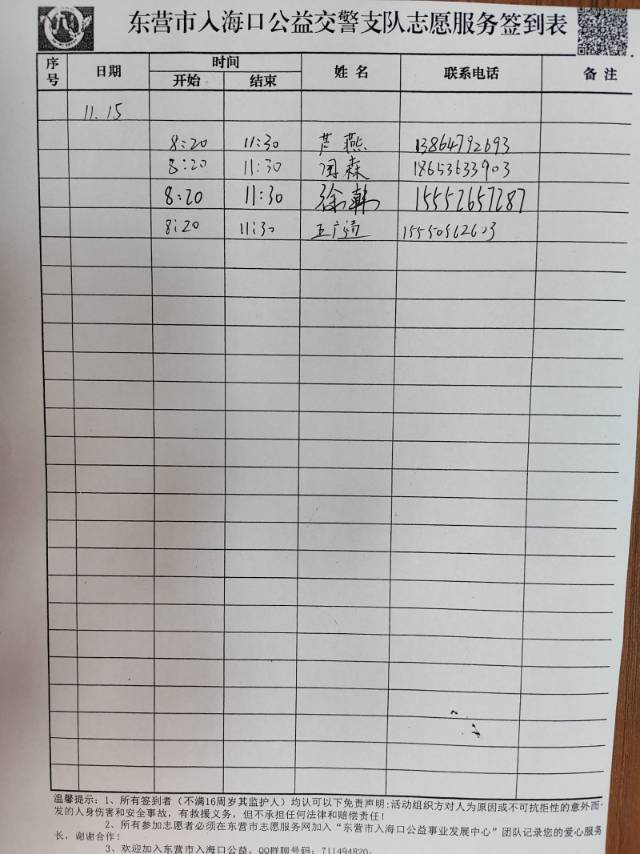 东营市入海口公益交警支队志愿服务签到表
序号 日期 时间 开始 结束 姓名 联系电话 备注
11.15
8:20 11:30 芦燕 13864792693
8:20 11:30 周森 18653633903
8:20 11:30 徐韩 15552657287
8:20 11:30 王广道 15550562603
温馨提示:1、所有签到者(不满16周岁其监护人)均认可以下免责声明:活动组织方对人为原因或不可抗拒性的意外而
发的人身伤害和安全事故,有救援义务,但不承担任何法律和赔偿责任!
2、所有参加志愿者必须在东营市志愿服务网加入“东营市入海口公益事业发展中心”团队记录您的爱心服务
长,谢谢合作!
3、欢迎加入东营市入海口公益,QQ群聊号码:711494820。